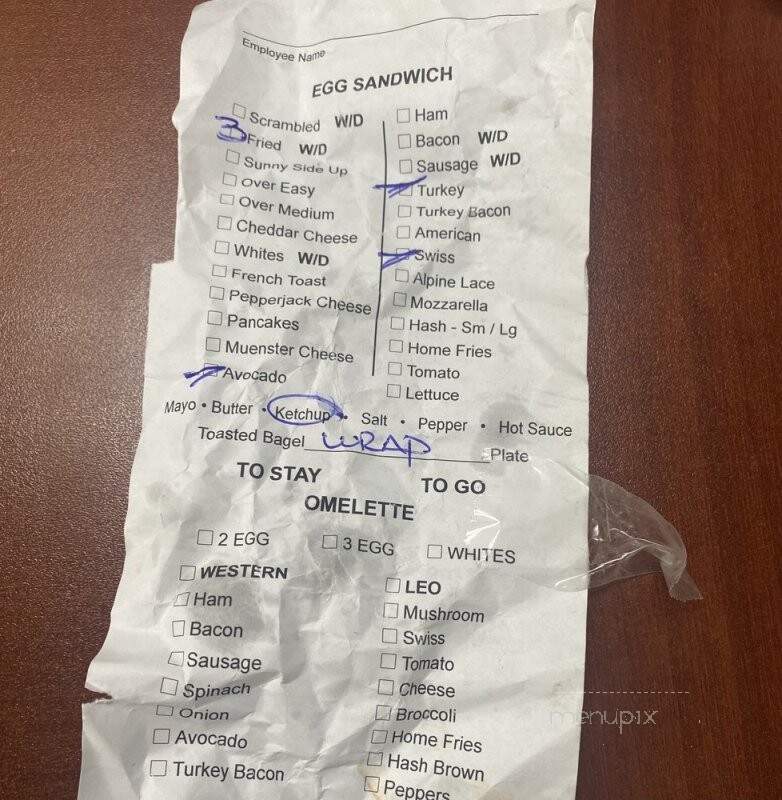 Employee Name
EGG SANDWICH
Scrambled W/D
3 Fried W/D
Sunny Side Up
Over Easy
Over Medium
Cheddar Cheese
Whites W/D
French Toast
Pepperjack Cheese
Pancakes
Muenster Cheese
Avocado
Ham
Bacon W/D
Sausage W/D
Turkey
Turkey Bacon
American
Swiss
Alpine Lace
Mozzarella
Hash - Sm / Lg
Home Fries
Tomato
Lettuce
Mayo • Butter • Ketchup • Salt • Pepper • Hot Sauce
Toasted Bagel WRAP Plate
TO STAY TO GO
OMELETTE
2 EGG 3 EGG WHITES
WESTERN
Ham
Bacon
Sausage
Spinach
Onion
Avocado
Turkey Bacon
LEO
Mushroom
Swiss
Tomato
Cheese
Broccoli
Home Fries
Hash Brown
Peppers
menupix